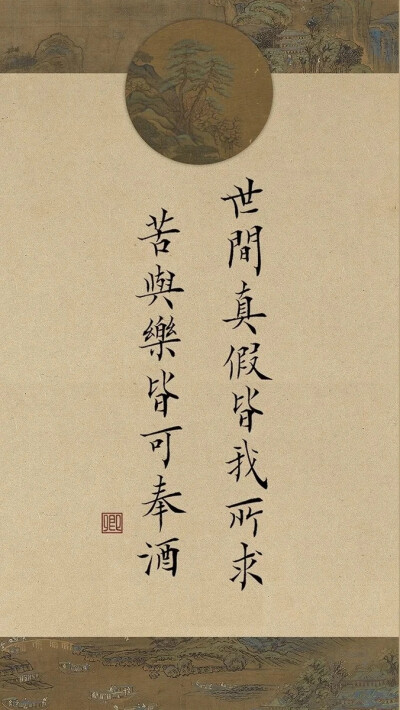 世間真假皆我所求
苦與樂皆可奉酒
卿